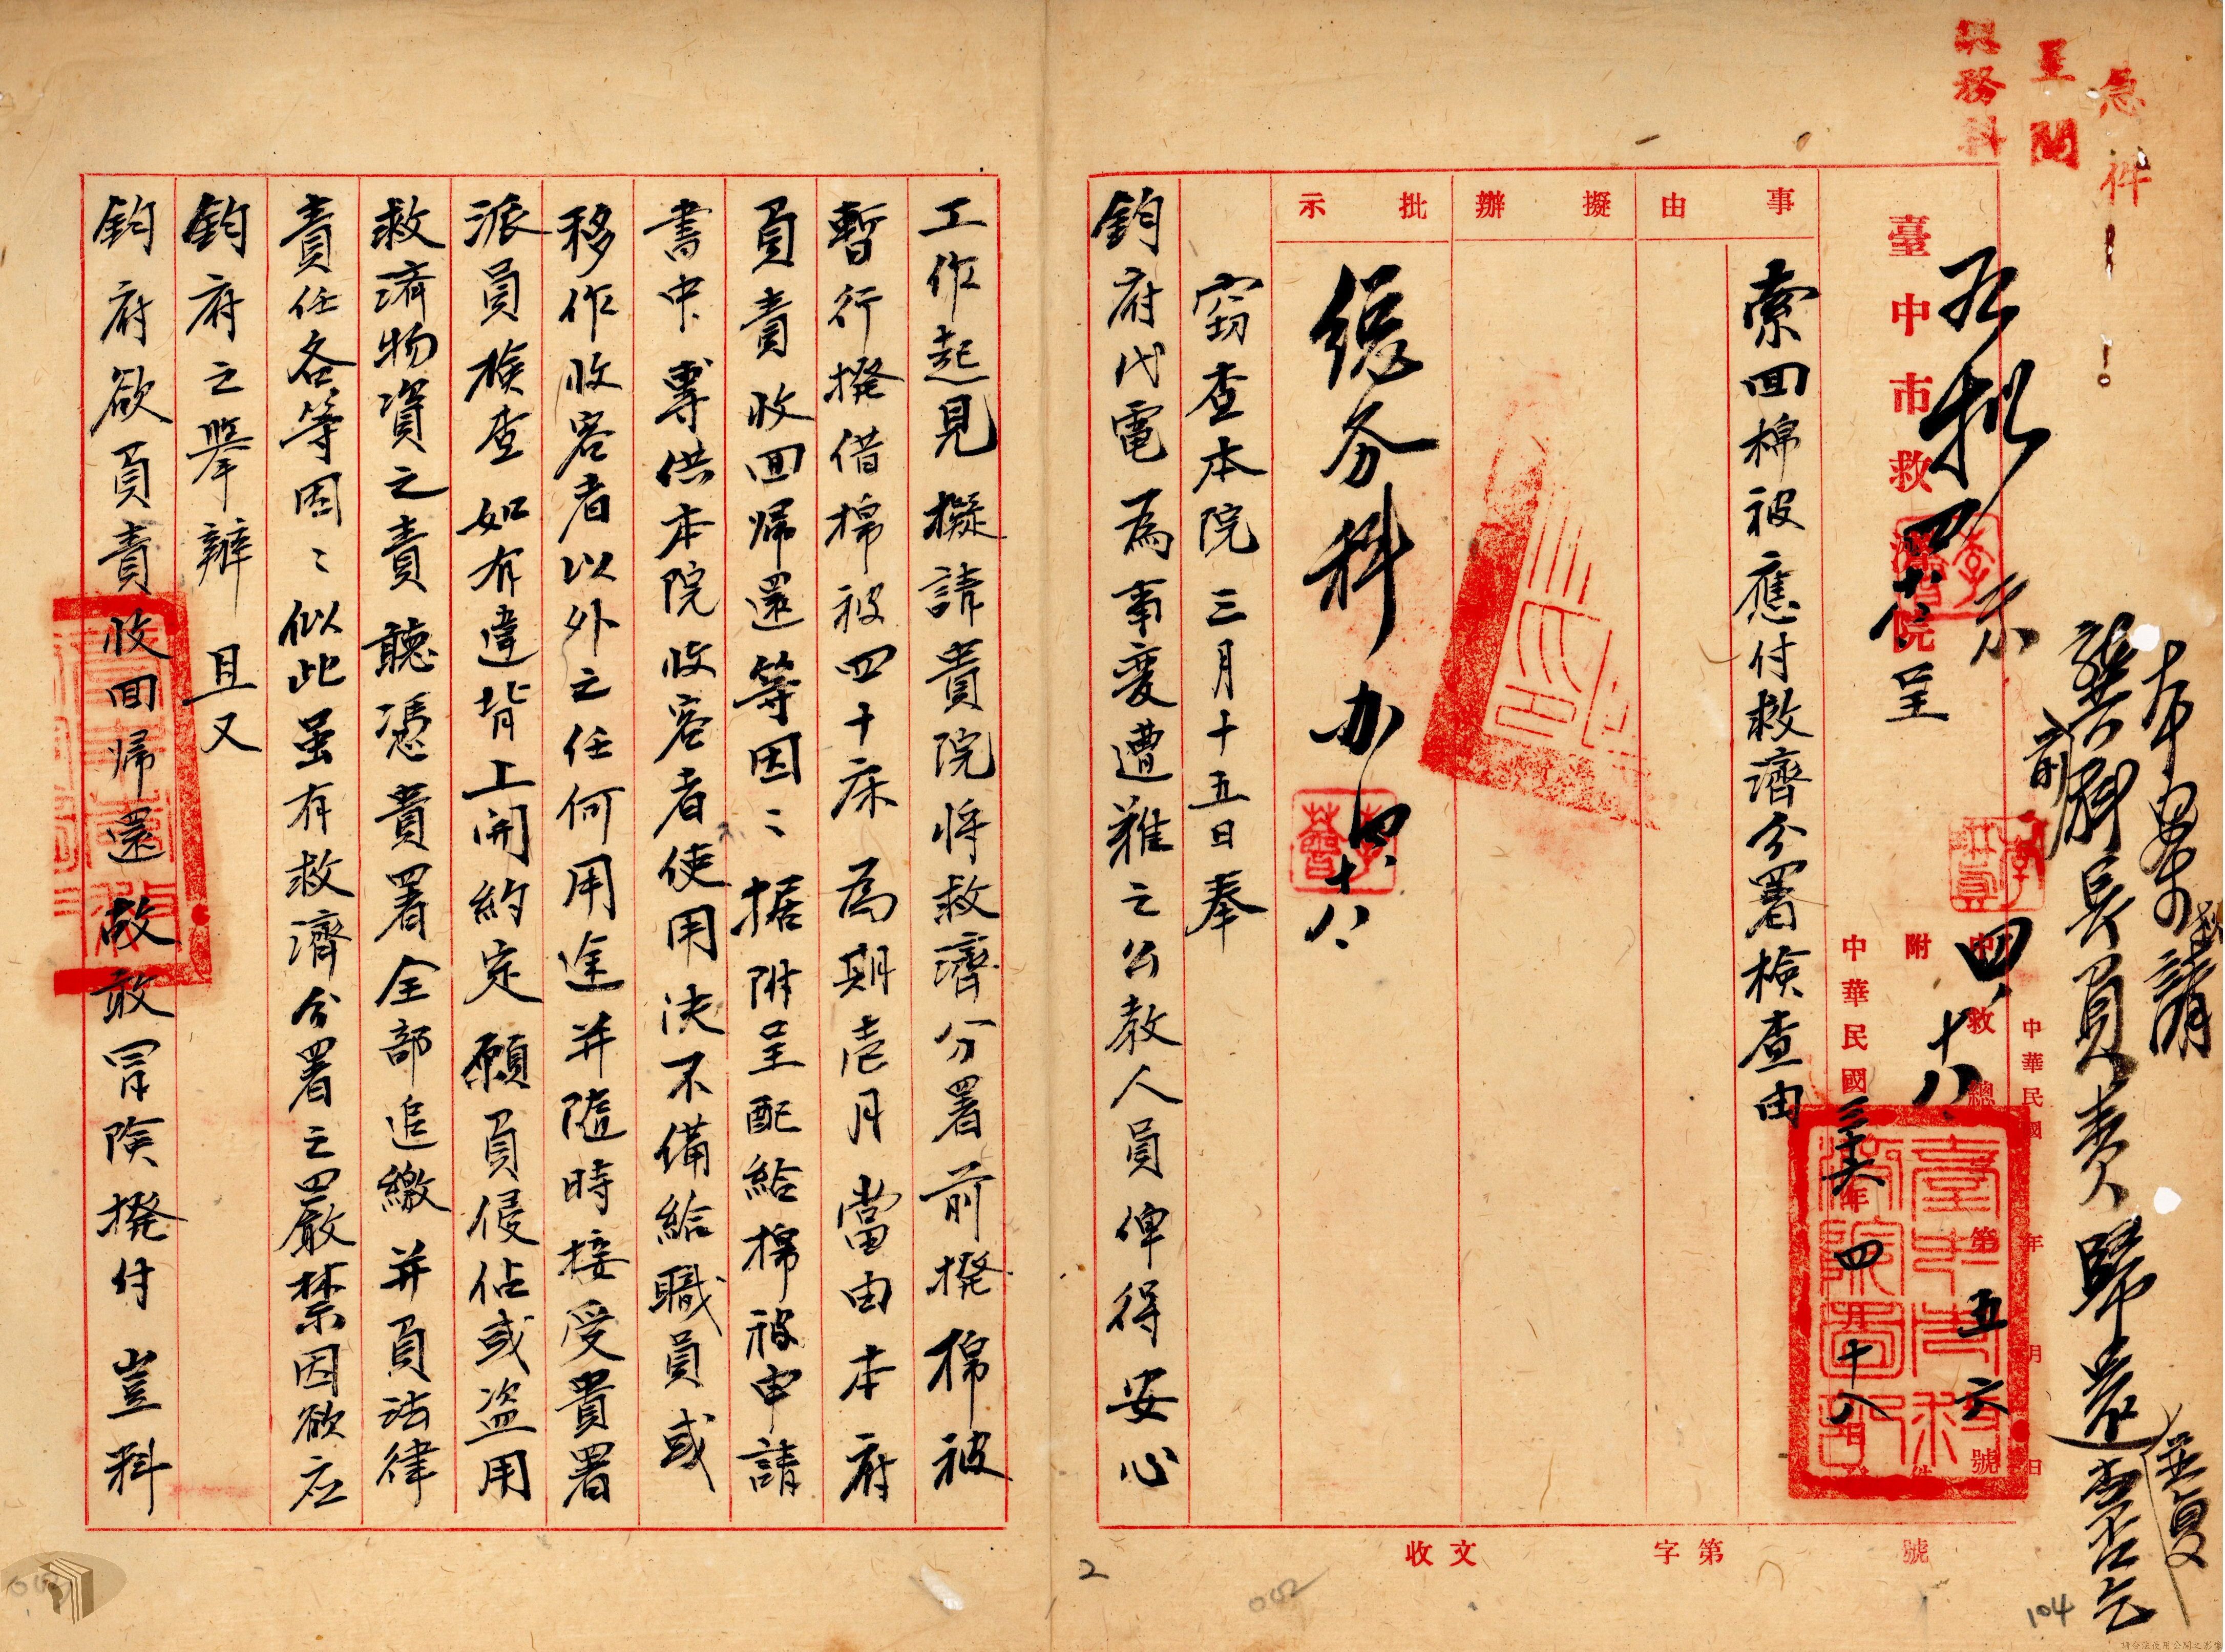 急件!!
至閱
總務科
臺中市救濟院呈
四、十八
附
中救總 第五六號
中華民國三十六年四月十八日
中華民國 年 月 日
事由
索回棉被應付救濟分署檢查由
擬辦
批示
總务科办
四、十八、
竊查本院三月十五日奉
鈞府代電為事变遭难之公教人員俾得安心
工作起見擬請貴院将救濟分署前撥棉被
暫行撥借棉被四十床為期壱月當由本府
負責收回歸還等因;据附呈配給棉被申請
書中專供本院收容者使用决不備給職員或
移作收容者以外之任何用途并隨時接受貴署
派員檢查如有違背上開約定願負侵佔或盗用
救濟物資之責聽憑貴署全部追繳并負法律
責任各等因;似此虽有救濟分署之嚴禁因欲应
鈞府之舉辦 且又
鈞府欲負責收回歸還故敢冐險撥付豈料
收文 字第 號
2
002
104
請合法使用公開之影像